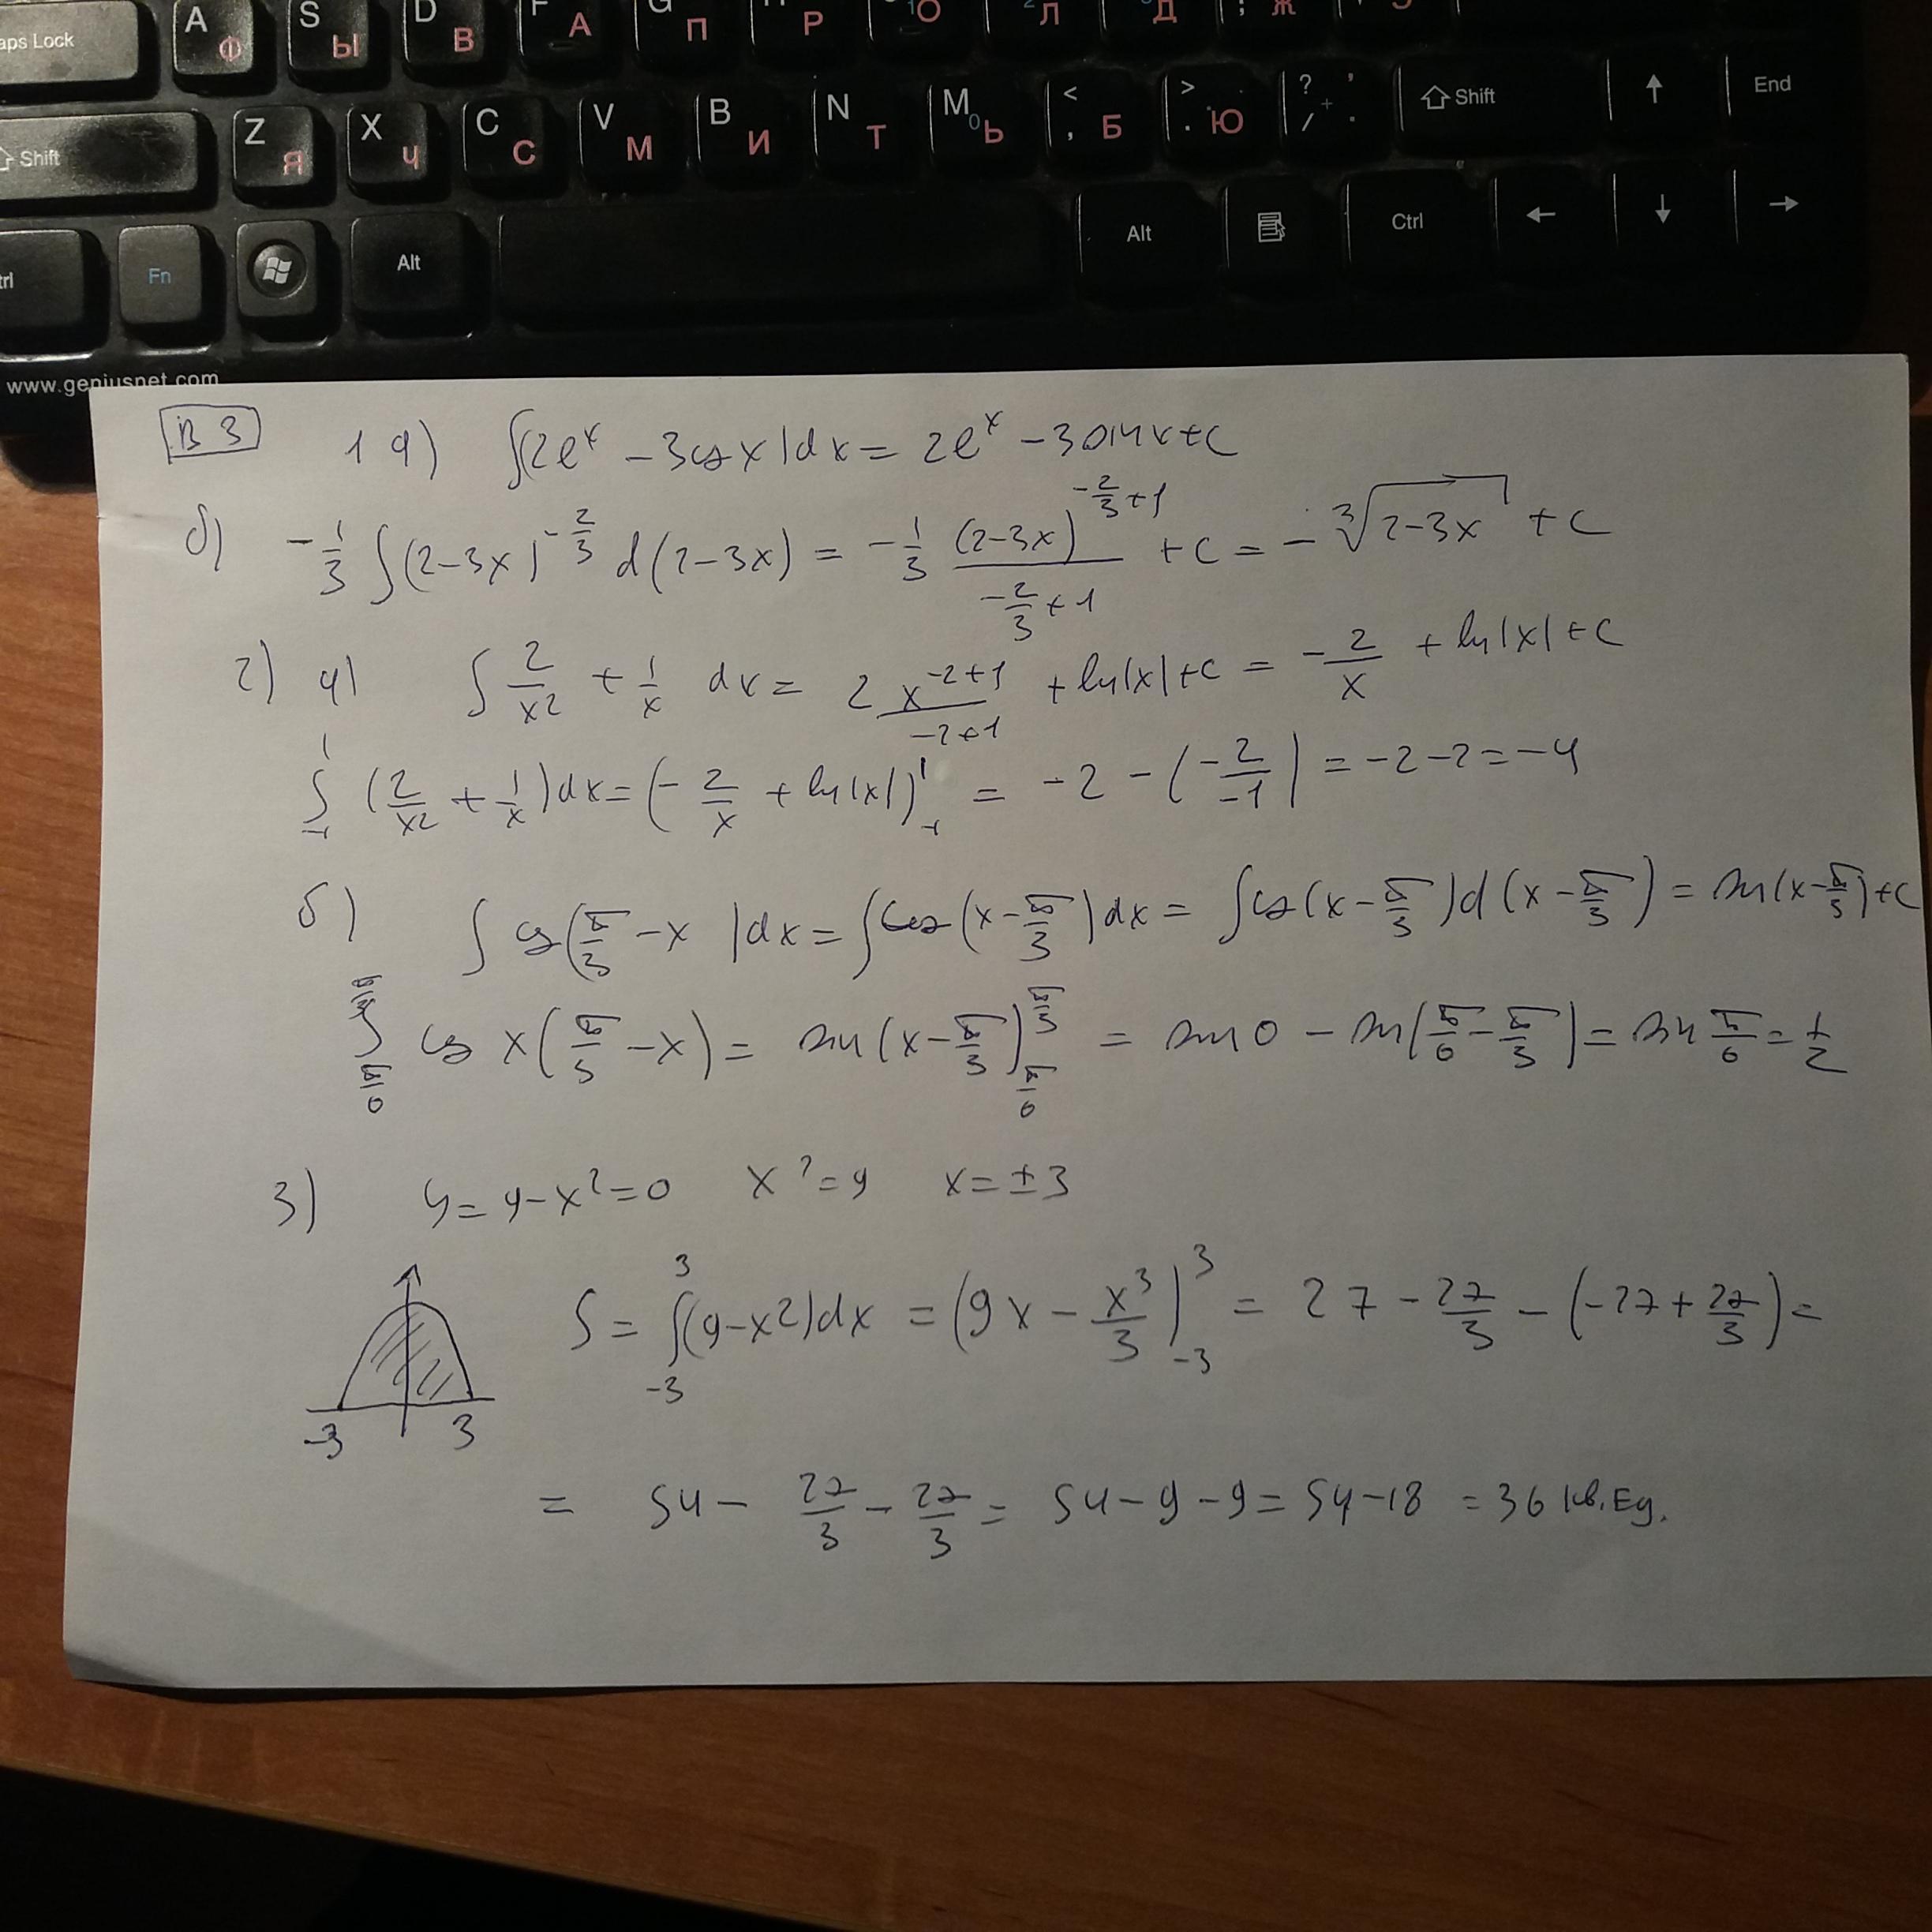 aps Lock A Ф S Ы D В F А П Р О Л Д Ж
Shift Z Я X Ч C С V М B И N Т M Ь < , Б > . Ю ? / Shift ↑ End
trl Fn Alt Alt Ctrl ← ↓ →
www.geniusnet.com
В 3 1 а) ∫(2e^x - 3cos x)dx = 2e^x - 3sin x + c
б) -1/3 ∫(2-3x)^(-2/3) d(2-3x) = -1/3 (2-3x)^(-2/3+1)/(-2/3+1) + c = -∛(2-3x) + c
2) а) ∫ 2/x² + 1/x dx = 2 x^(-2+1)/(-2+1) + ln|x| + c = -2/x + ln|x| + c
∫_{-1}^{1} (2/x² + 1/x)dx = (-2/x + ln|x|)_{-1}^{1} = -2 - (-2/-1) = -2-2 = -4
б) ∫ cos(π/3 - x)dx = ∫cos(x - π/3)dx = ∫cos(x - π/3)d(x - π/3) = sin(x - π/3) + c
∫_{π/6}^{π/3} cos x(π/3 - x) = sin(x - π/3)_{π/6}^{π/3} = sin 0 - sin(π/6 - π/3) = sin π/6 = 1/2
3) y = 9 - x² = 0 x² = 9 x = ±3
S = ∫_{-3}^{3}(9-x²)dx = (9x - x³/3)_{-3}^{3} = 27 - 27/3 - (-27 + 27/3) =
-3 3
= 54 - 27/3 - 27/3 = 54 - 9 - 9 = 54 - 18 = 36 кв. Ед.